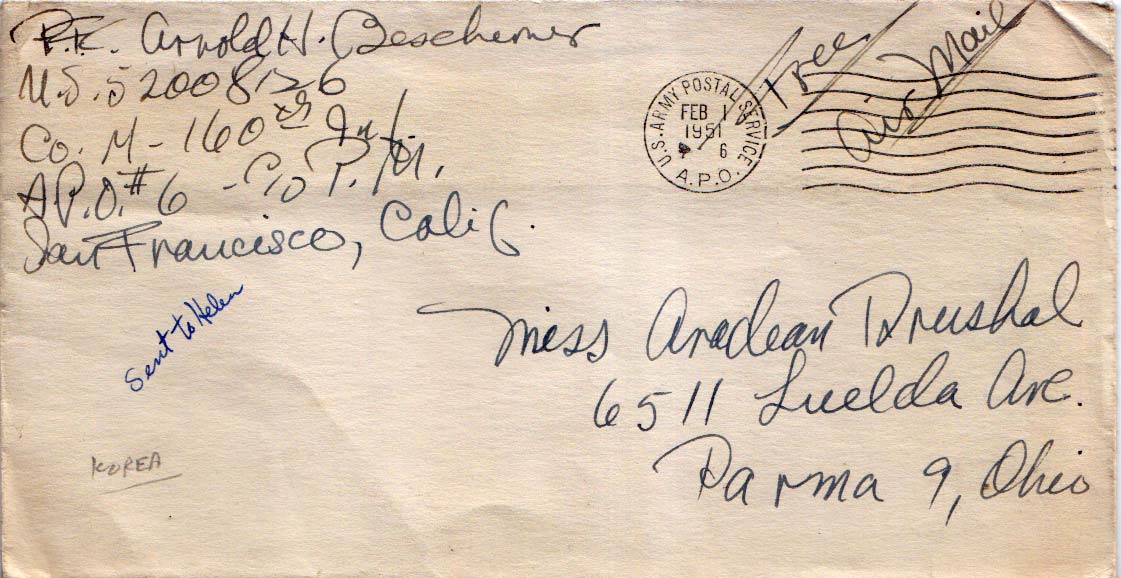 Arnold H. Beschemer
U.S. 52008126
Co. M - 160th Inf.
A.P.O. #6 - c/o P.M.
San Francisco, Calif.
U.S. ARMY POSTAL SERVICE
FEB 1
1951
6
A.P.O.
Free
Air Mail
Sent to Helen
Miss Aradean Drushal
6511 Luelda Ave.
Parma 9, Ohio
KOREA